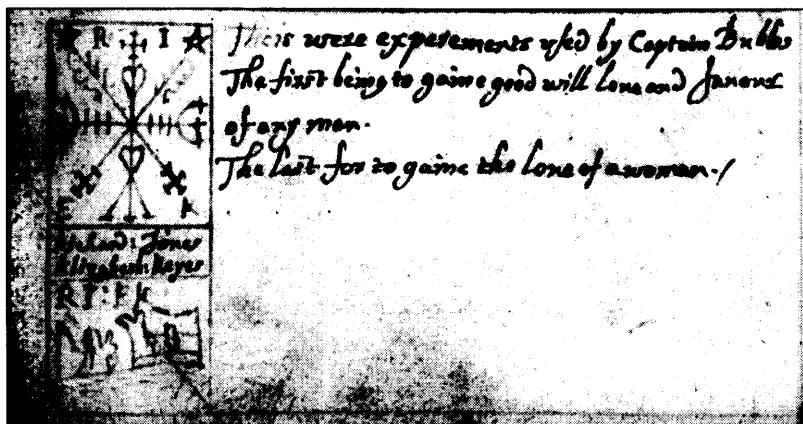 R I A
E K
Richard: Jones
Elizabeth: Kayes
R I : E K
Theis were experements vsed by Captaim Bubbs
The first being to gaine good will loue and fauour
of any man.
The last for to gaine the loue of a woman. /